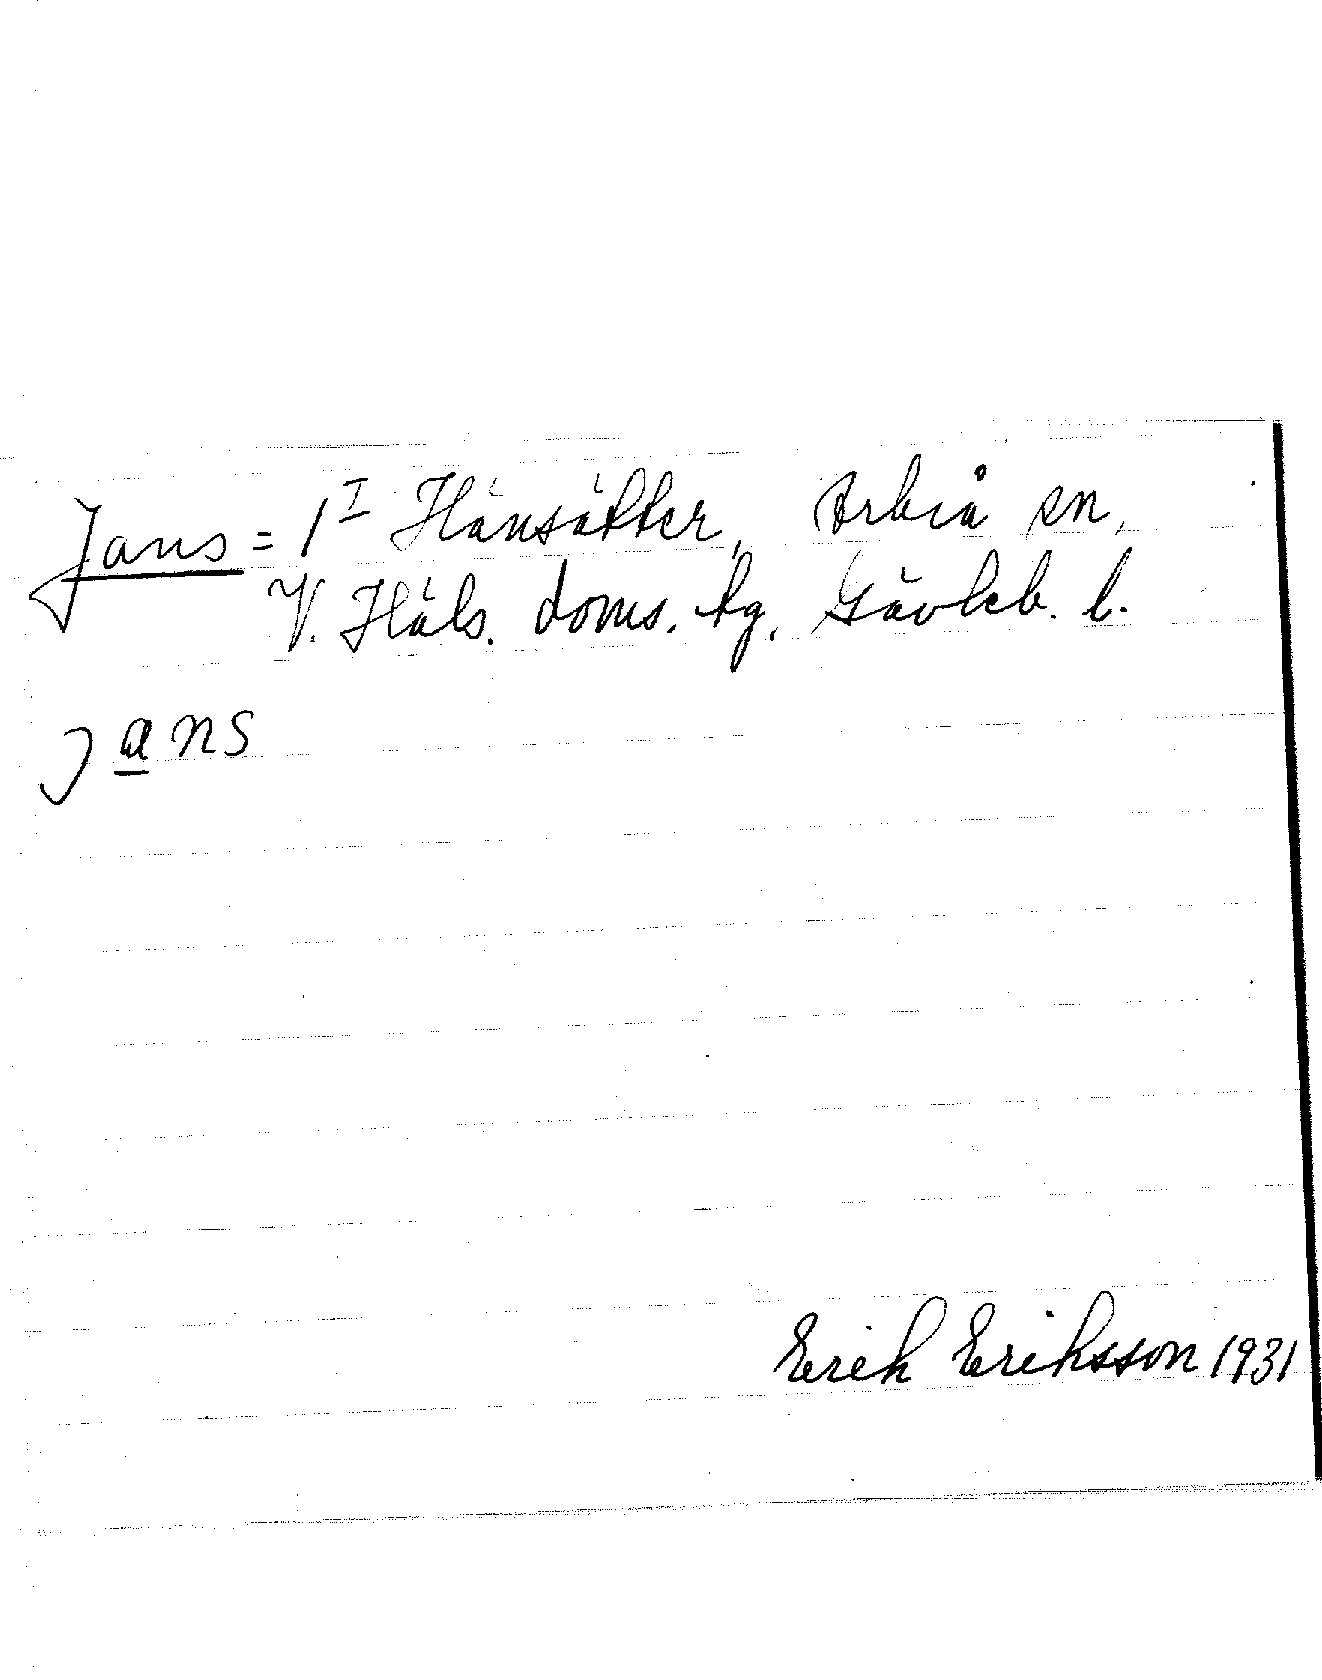 Jans = 1 I Hänsätter, Arbrå sn,
V. Häls. doms. tg, Gävleb. l.
Jans
Erik Eriksson 1931